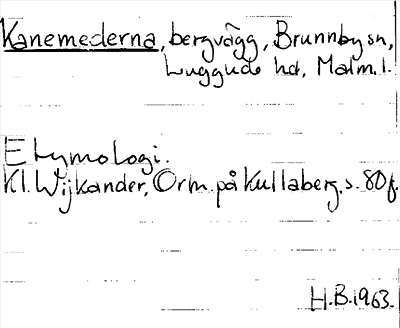 Kanemederna, bergvägg, Brunnby sn,
Luggude hd, Malm. l.
Etymologi.
Kl. Wijkander, Orm. på Kullaberg. s. 80 f.
H.B. 1963.